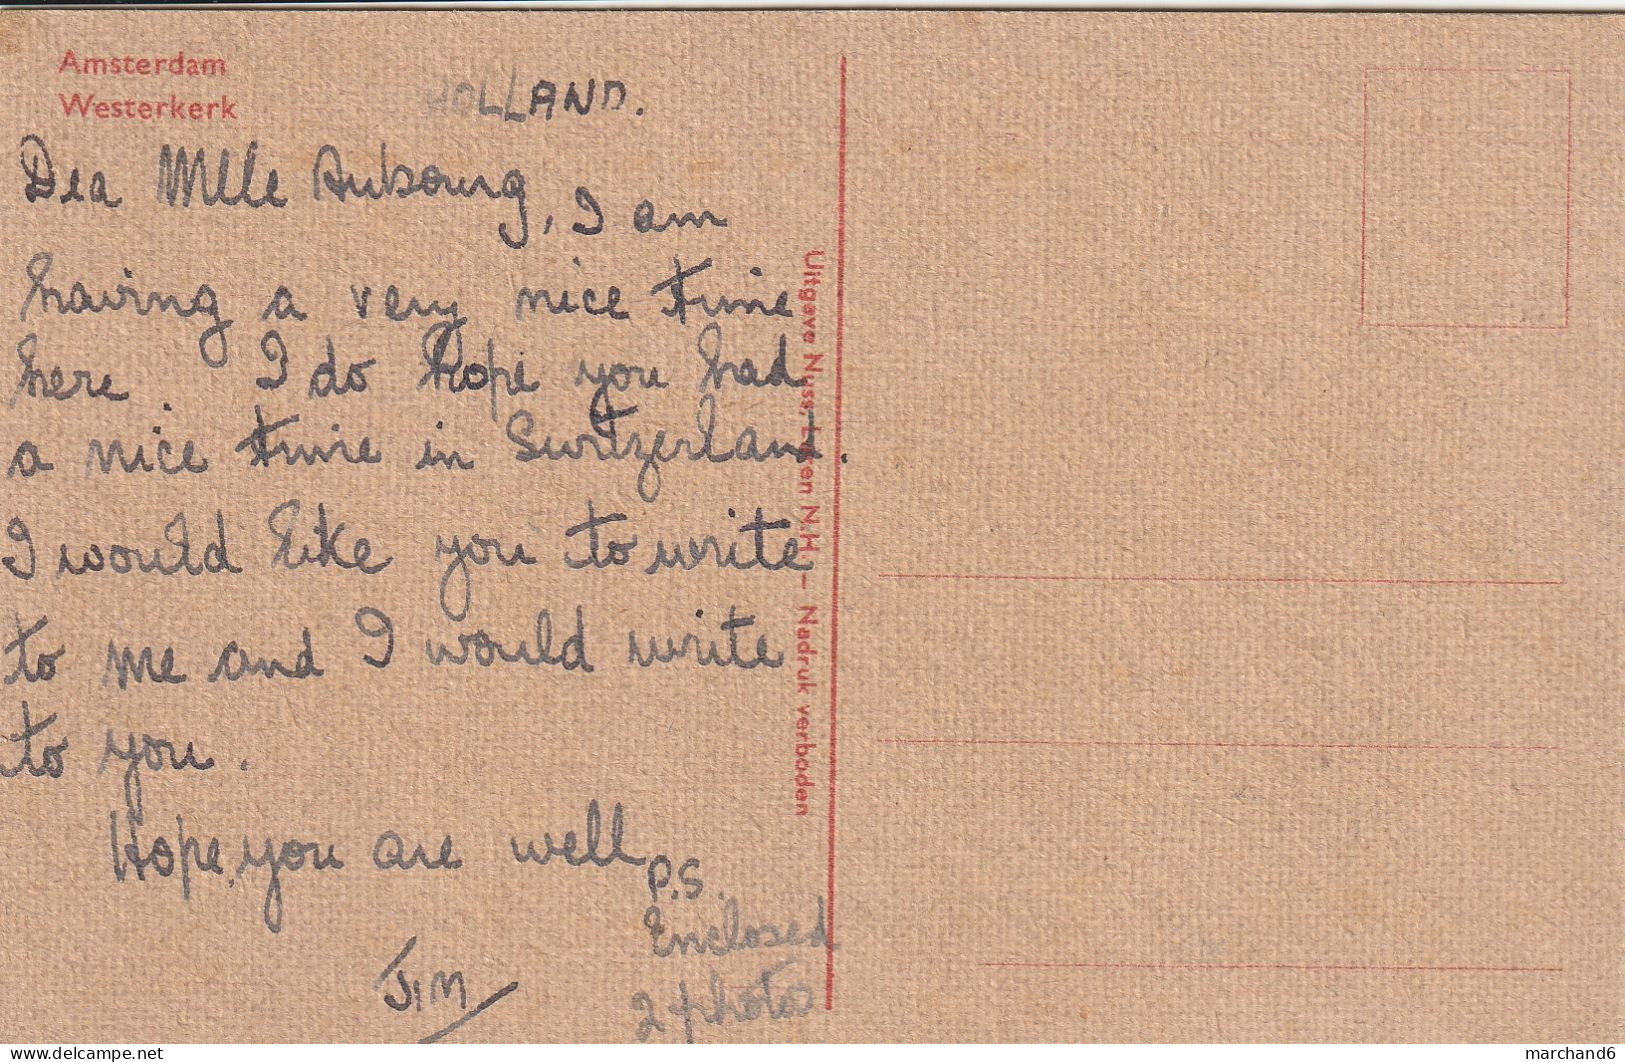 Amsterdam
Westerkerk
HOLLAND.
Dea Mlle Aubourg, I am
having a very nice time
here. I do hope you had
a nice time in Switzerland.
I would like you to write
to me and I would write
to you.
Hope you are well
P.S.
Enclosed
2 photos
Jim
Uitgave Nuss, Laren N.H. – Nadruk verboden
delcampe.net
marchand6